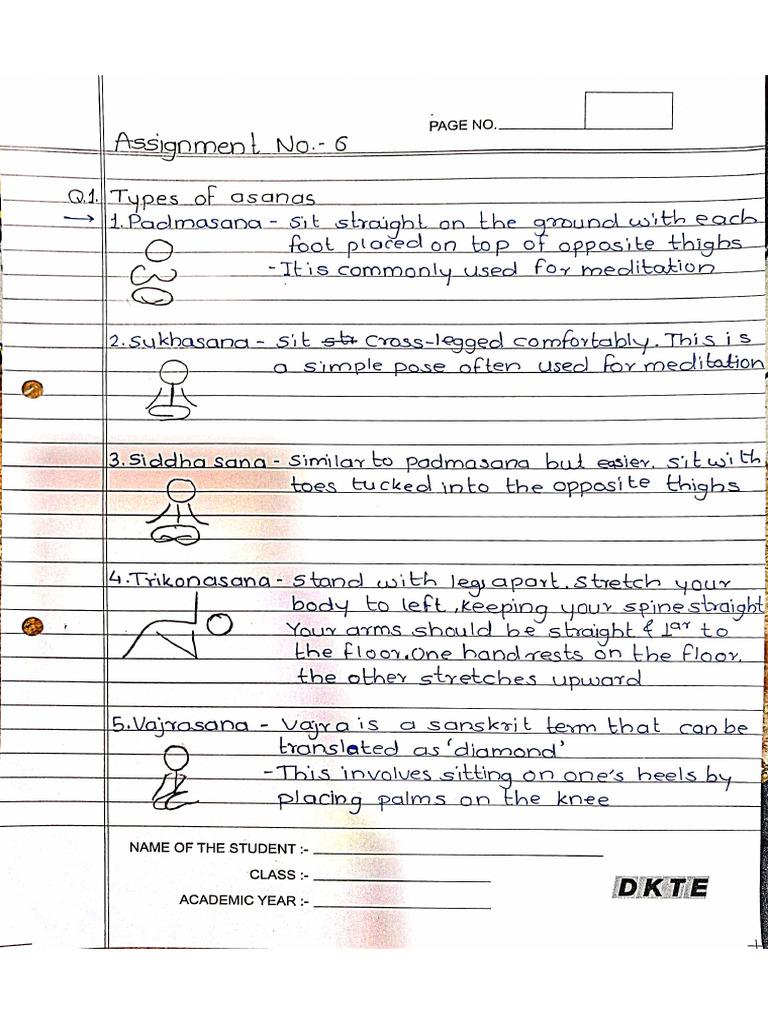 PAGE NO.
Assignment No.- 6
Q.1. Types of asanas
→ 1. Padmasana - sit straight on the ground with each
foot placed on top of opposite thighs
- It is commonly used for meditation
2. Sukhasana - sit str cross-legged comfortably. This is
a simple pose often used for meditation
3. Siddhasana - similar to padmasana but easier. sit with
toes tucked into the opposite thighs
4. Trikonasana - stand with legs apart. stretch your
body to left, keeping your spine straight
Your arms should be straight & lar to
the floor. One hand rests on the floor.
the other stretches upward
5. Vajrasana - Vajra is a sanskrit term that can be
translated as 'diamond'
- This involves sitting on one's heels by
placing palms on the knee
NAME OF THE STUDENT :-
CLASS :-
ACADEMIC YEAR :-
DKTE